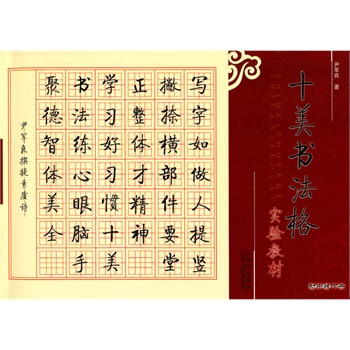 尹军良 著
十美书法格
实验教材
写字如做人提竖
撇捺横部件要堂
正整体才精神
学习好习惯十美
书法练心眼脑手
聚德智体美全